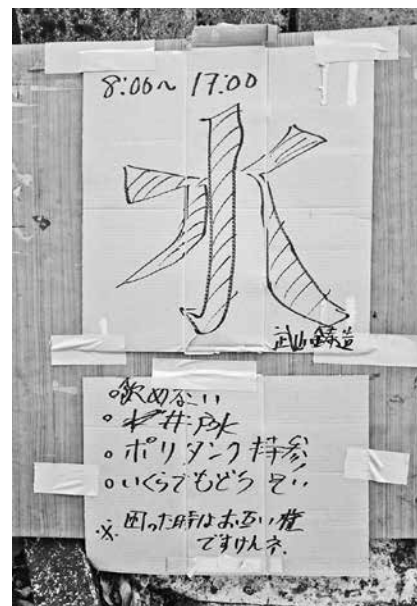 8:00〜17:00
水
武山鋳造
○飲めない
○井戸水
○ポリタンク持参
○いくらでもどうぞ
※困った時はお互い様
ですけんネ.